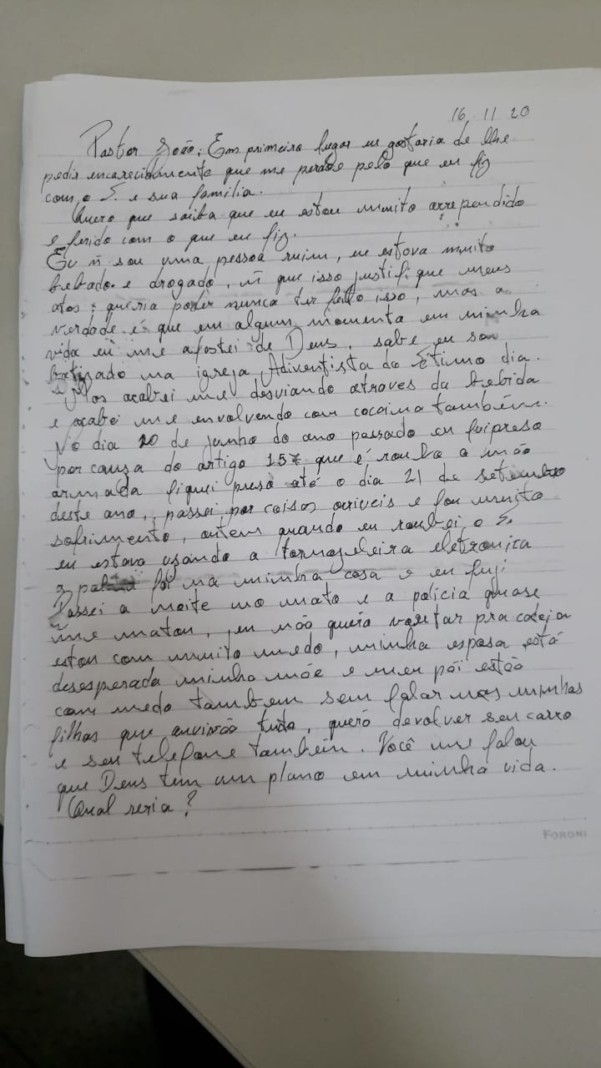 16 11 20
Pastor João; Em primeiro lugar eu gostaria de lhe
pedir encarecidamente que me perdoe pelo que eu fiz
com o S. e sua família.
Quero que saiba que eu estou muito arrependido
e ferido com o que eu fiz.
Eu ñ sou uma pessoa ruim, eu estava muito
bebado e drogado, ñ que isso justifique meus
atos; queria poder nunca ter feito isso, mas a
verdade é que em algum momento em minha
vida eu me afastei de Deus, sabe eu sou
batizado na igreja Adventista do Setimo dia.
Mas acabei me desviando atraves da bebida
e acabei me envolvendo com cocaina também.
No dia 20 de junho do ano passado eu fui preso
por causa do artigo 157 que é roubo a mão
armada fiquei preso até o dia 21 de setembro
deste ano, passei por coisas orriveis e fou muito
sofrimento, ontem quando eu roubei o S.
eu estava usando a tornozeleira eletronica
a foi na minha casa e eu fugi
Passei a noite no mato e a policia quase
me matou, eu não quero voutar pra cadeia
estou com muito medo, minha esposa está
desesperada minha mãe e meu pai estão
com medo tambem sem falar nas minhas
filhas que ouvirão tudo, quero devolver seu carro
e seu telefone também. Você me falou
que Deus tem um plano em minha vida.
Qual seria?
FORONI